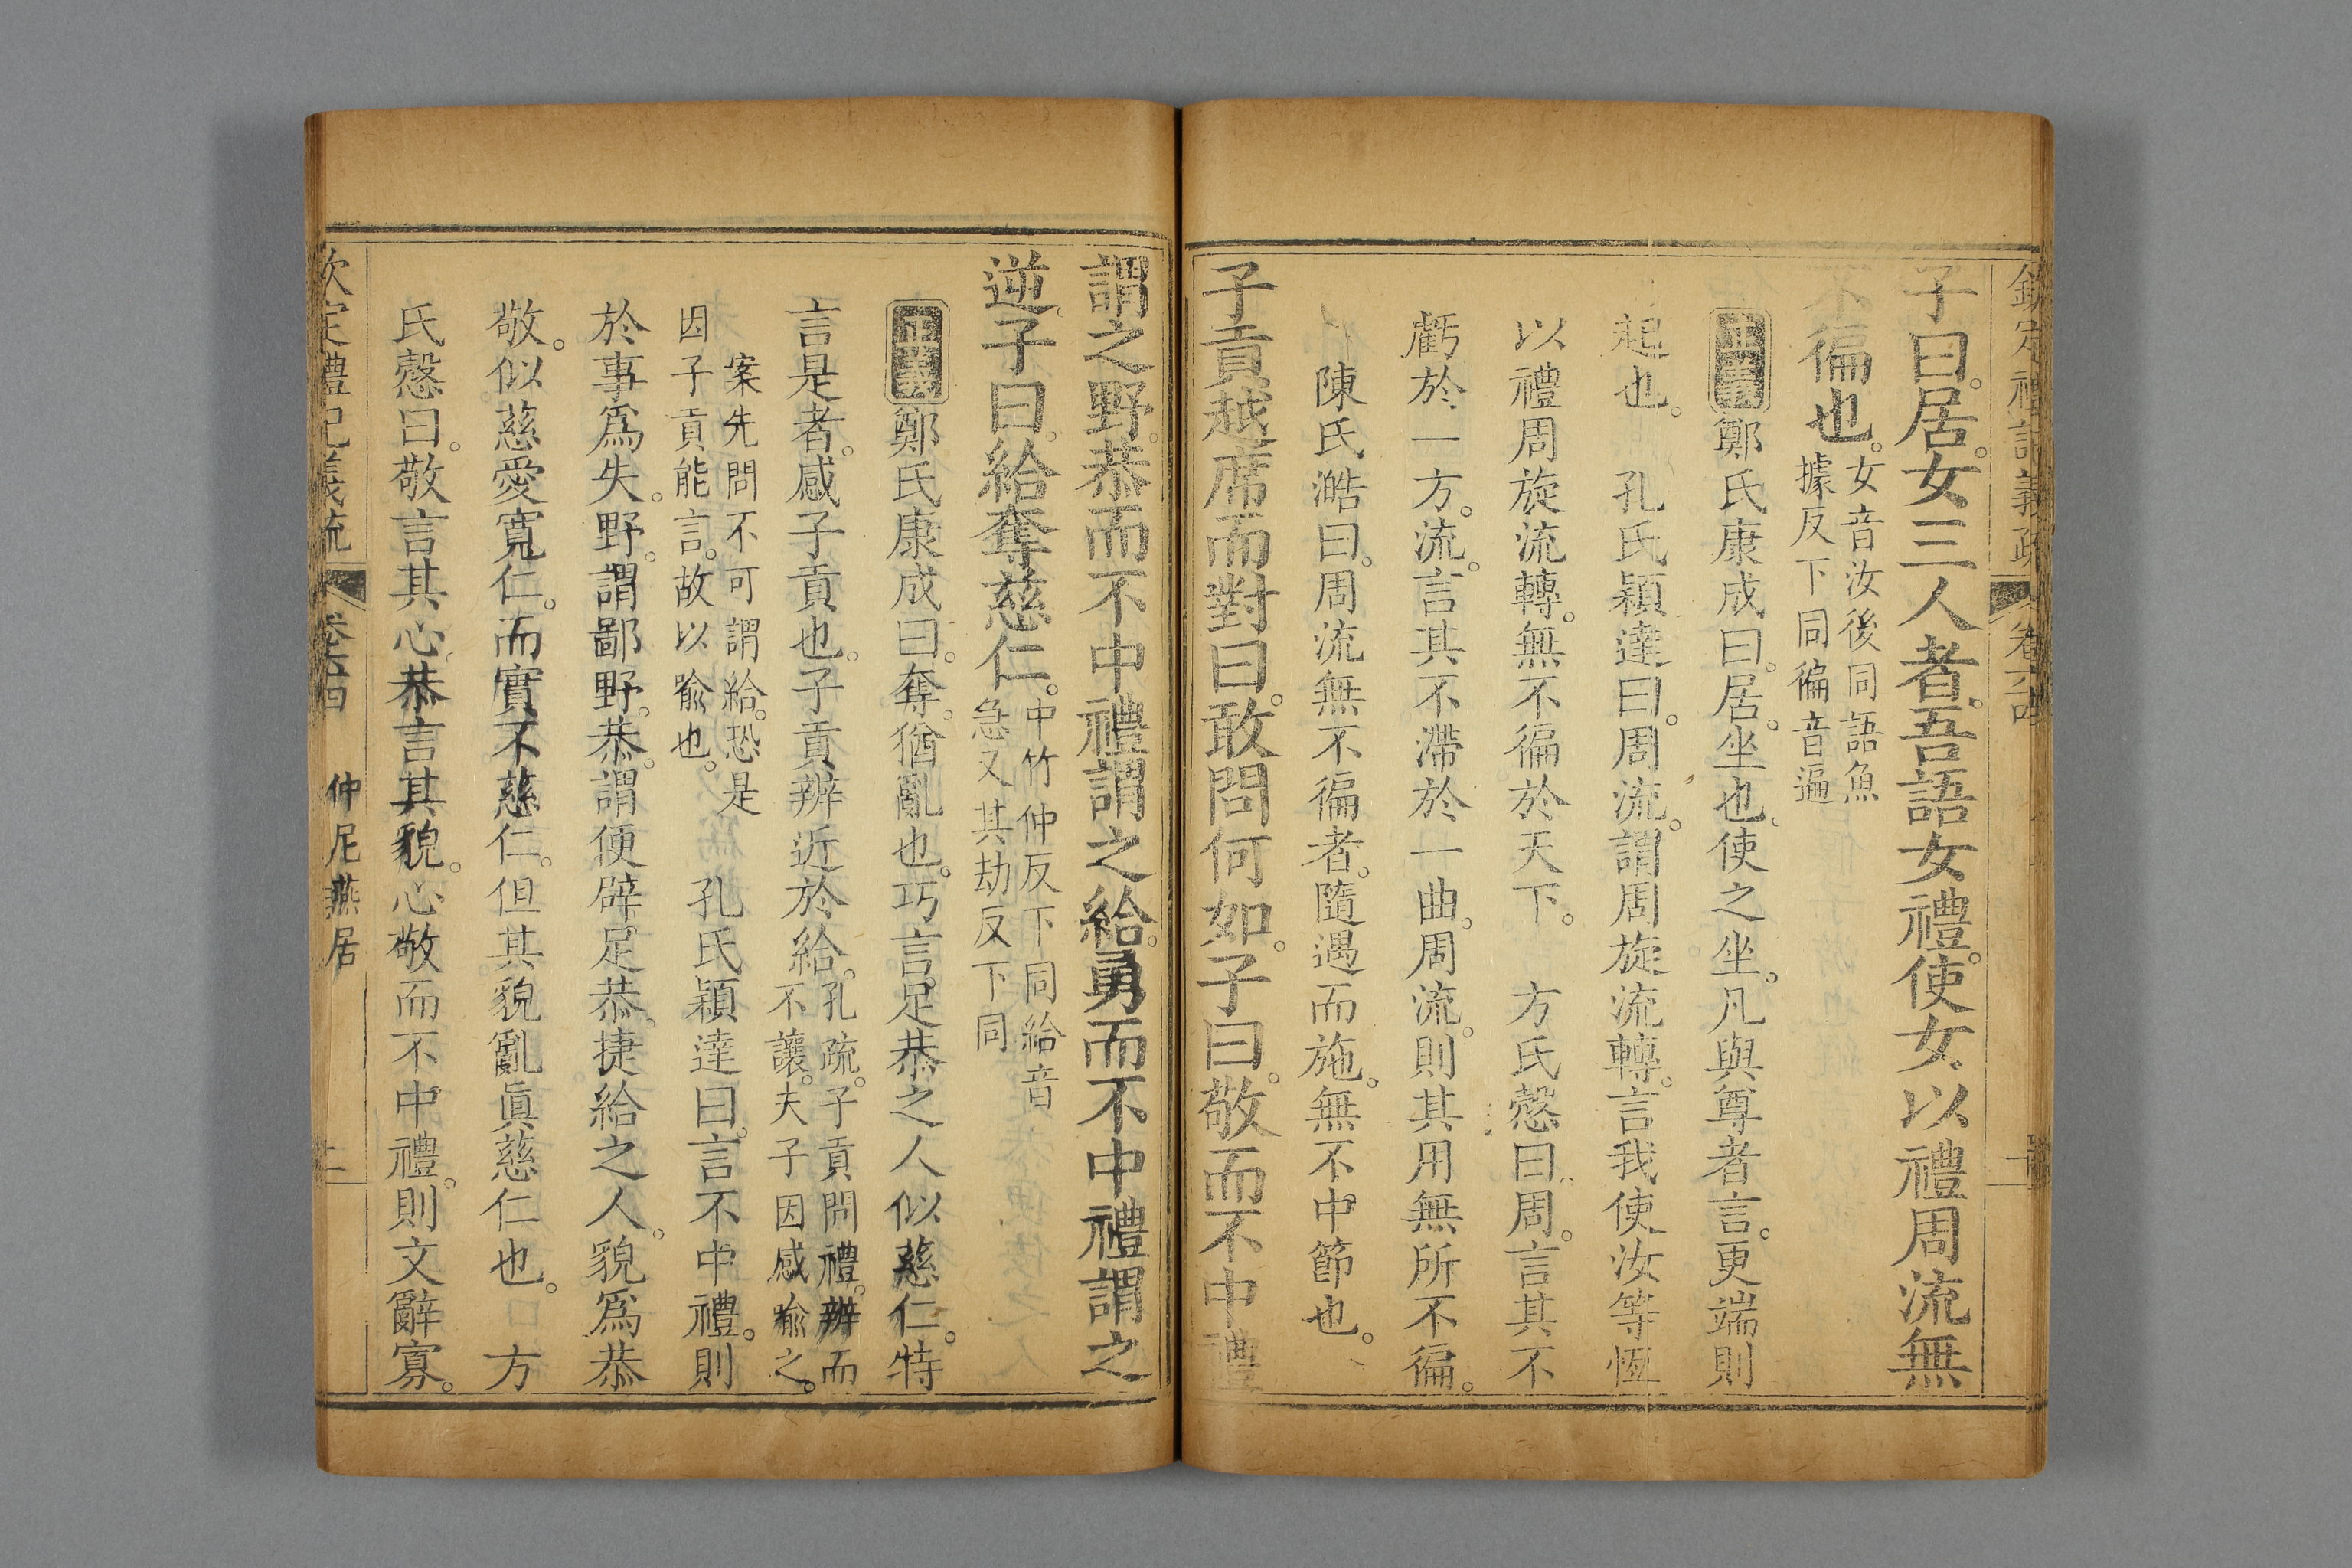 欽定禮記義疏 卷六十四 一
子曰。居。女三人者。吾語女禮。使女以禮周流無
不徧也。女音汝後同語魚
據反下同徧音遍
正義 鄭氏康成曰。居。坐也。使之坐。凡與尊者言。更端則
起也。 孔氏穎達曰。周流。謂周旋流轉。言我使汝等恆
以禮周旋流轉。無不徧於天下。 方氏慤曰。周。言其不
虧於一方。流。言其不滯於一曲。周流。則其用無所不徧。
陳氏澔曰。周流無不徧者。隨遇而施。無不中節也。
子貢越席而對曰。敢問何如。子曰。敬而不中禮
謂之野。恭而不中禮謂之給。勇而不中禮謂之
逆。子曰。給奪慈仁。中竹仲反下同給音
急又其劫反下同
正義 鄭氏康成曰。奪。猶亂也。巧言足恭之人似慈仁。特
言是者。感子貢也。子貢辨近於給。孔疏。子貢問禮。辨而
不讓。夫子因感喻之。
案先問不可謂給。恐是
因子貢能言。故以喻也。 孔氏穎達曰。言不中禮。則
於事爲失。野。謂鄙野。恭。謂便辟。足恭。捷給之人。貌爲恭
敬。似慈愛寬仁。而實不慈仁。但其貌亂眞慈仁也。 方
氏慤曰。敬言其心。恭言其貌。心敬而不中禮。則文辭寡。
欽定禮記義疏 卷六十四 仲尼燕居 二